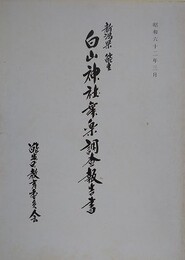 昭和六十二年三月
新潟県 能生
白山神社舞楽調査報告書
能生町教育委員会